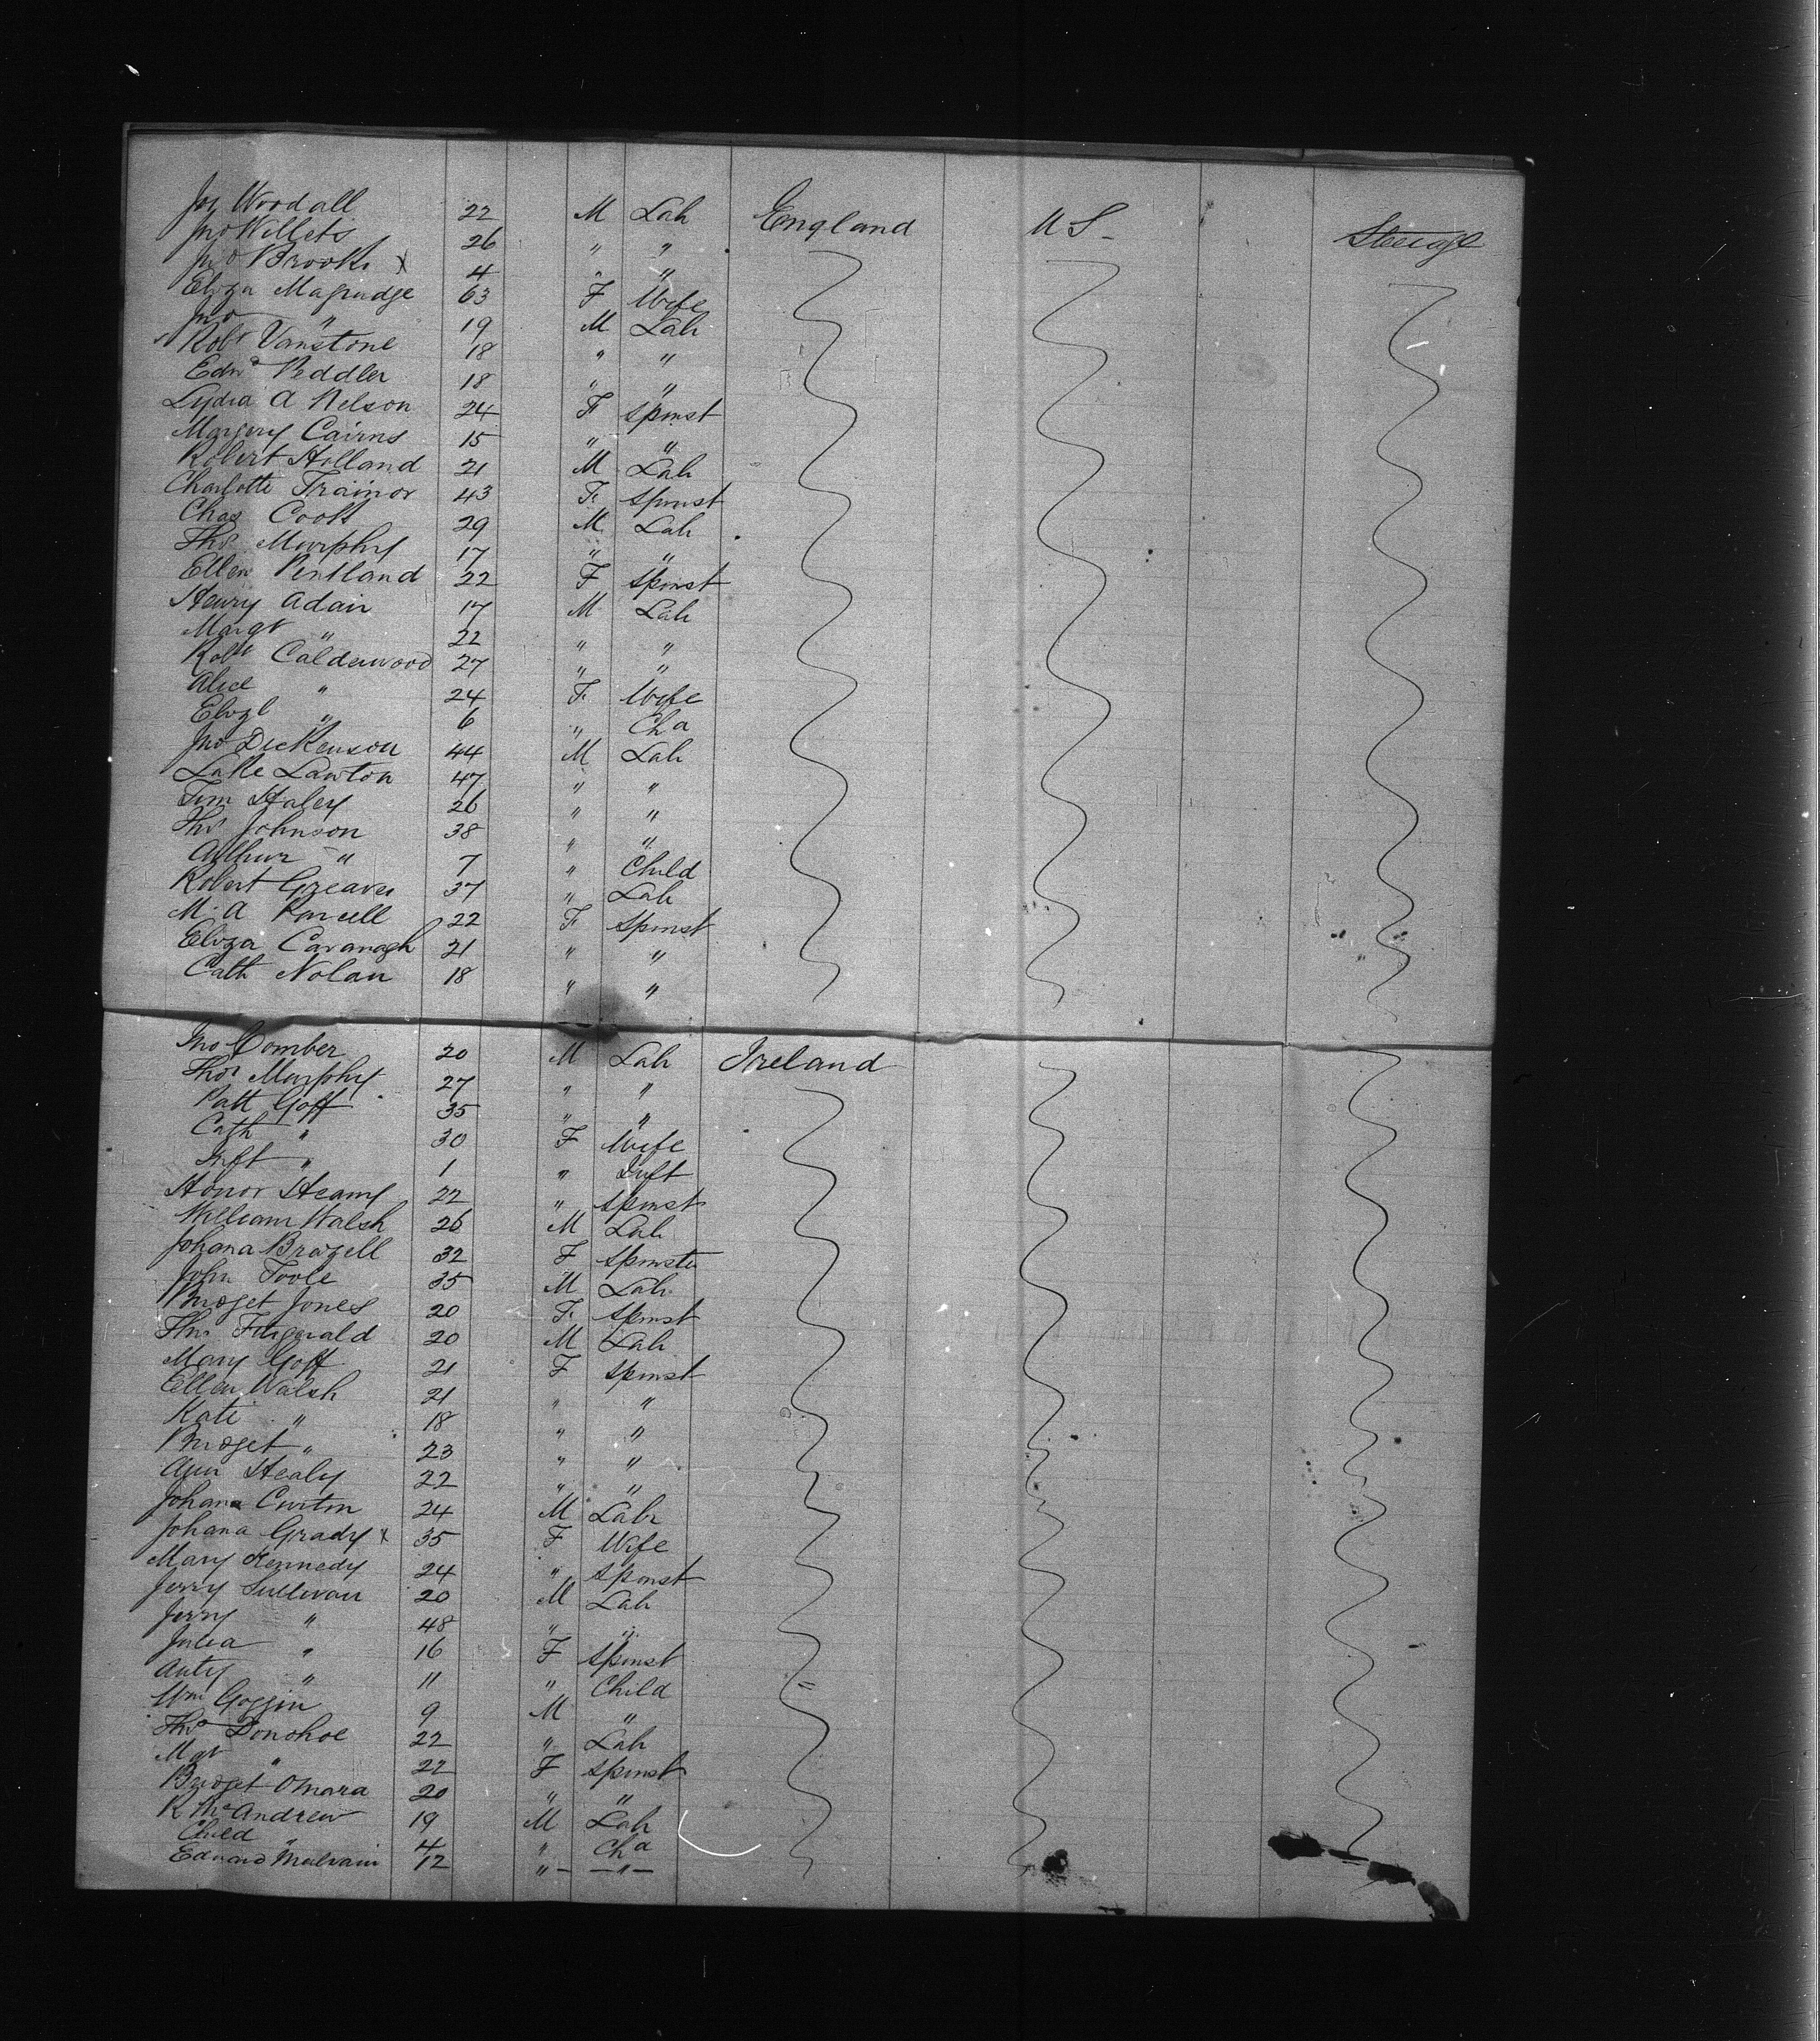 Jos Woodall 22 M Lab England U S - Steerge
Jno Willets 26 " "
Jno Brooks x 4 " "
Eliza Magrudge 63 F Wife
Jno " 19 M Lab
Robt Vanstone 18 " "
Edwd Peddler 18 " "
Lydia A Nelson 24 F Spinst
Margery Cairns 15 " "
Robert Holland 21 M Lab
Charlotte Trainor 43 F Spinst
Chas Cook 29 M Lab
Thos Murphy 17 " "
Ellen Pentland 22 F Spinst
Henry Adair 17 M Lab
Margt " 22 " "
Robt Calderwood 27 " "
Alice " 24 F Wife
Elizt " 6 " Chd
Jno Dickenson 44 M Lab
Luke Lawton 47 " "
Tim Haley 26 " "
Thos Johnson 38 " "
Arthur " 7 " Child
Robert Greaves 37 " Lab
M. A Purcell 22 F Spinst
Eliza Cavanagh 21 " "
Cath Nolan 18 " "
Jno Comber 20 M Lab Ireland
Thos Murphy 27 " "
Patt Goff 35 " "
Cath " 30 F Wife
Inft " 1 " Inft
Honor Heany 22 " Spinst
William Walsh 26 M Lab
Johana Brazell 32 F Spinste
John Toole 35 M Lab
Bridget Jones 20 F Spinst
Thos Fitzgerald 20 M Lab
Mary Goff 21 F Spinst
Ellen Walsh 21 " "
Kate " 18 " "
Bridget " 23 " "
Ann Healy 22 " "
Johana Curtin 24 M Labr
Johana Grady x 35 F Wife
Mary Kennedy 24 " Spinst
Jerry Sullivan 20 M Lab
Jerry " 48 " "
Julia " 16 F Spinst
Anty " 11 " Child
Wm Goggin 9 M "
Thos Donohoe 22 " Lab
Mgt " 22 F Spinst
Bridget OMara 20 " "
R McAndrew 19 M Lab
Child " 4 " Chd
Edward Mulvain 12 " - - " -